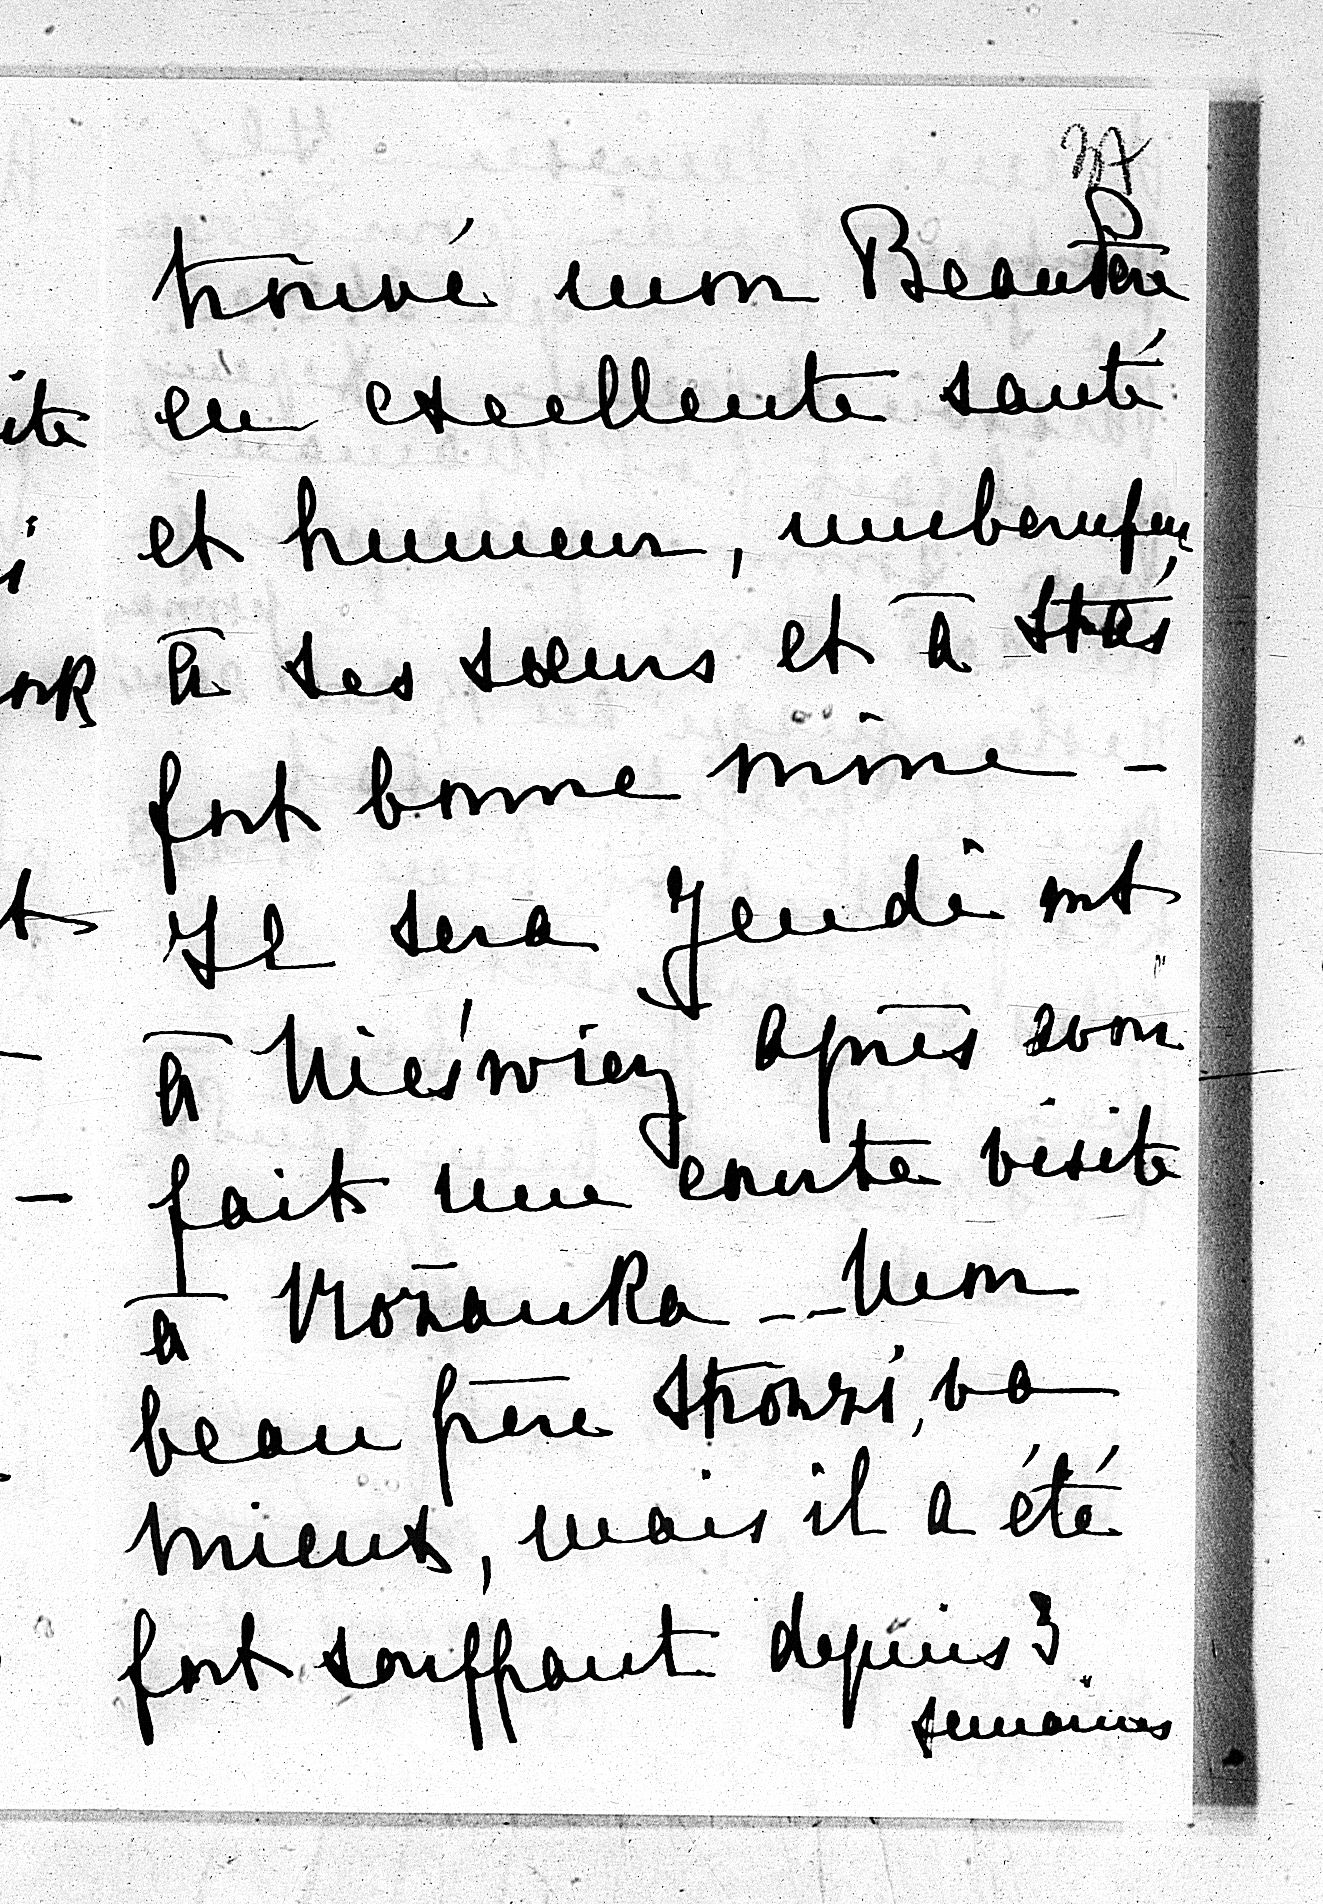 trouvé mon Beau Père
en excellente santé
et humeur,
à ses soeurs et à Staś
fort bonne mine -
Il sera Jeudi
à Nieświez après avoir
fait une courte visite
à Rożanka -- Mon
beau frère va
mieux, mais il a été
fort souffrant depuis 3
semaines